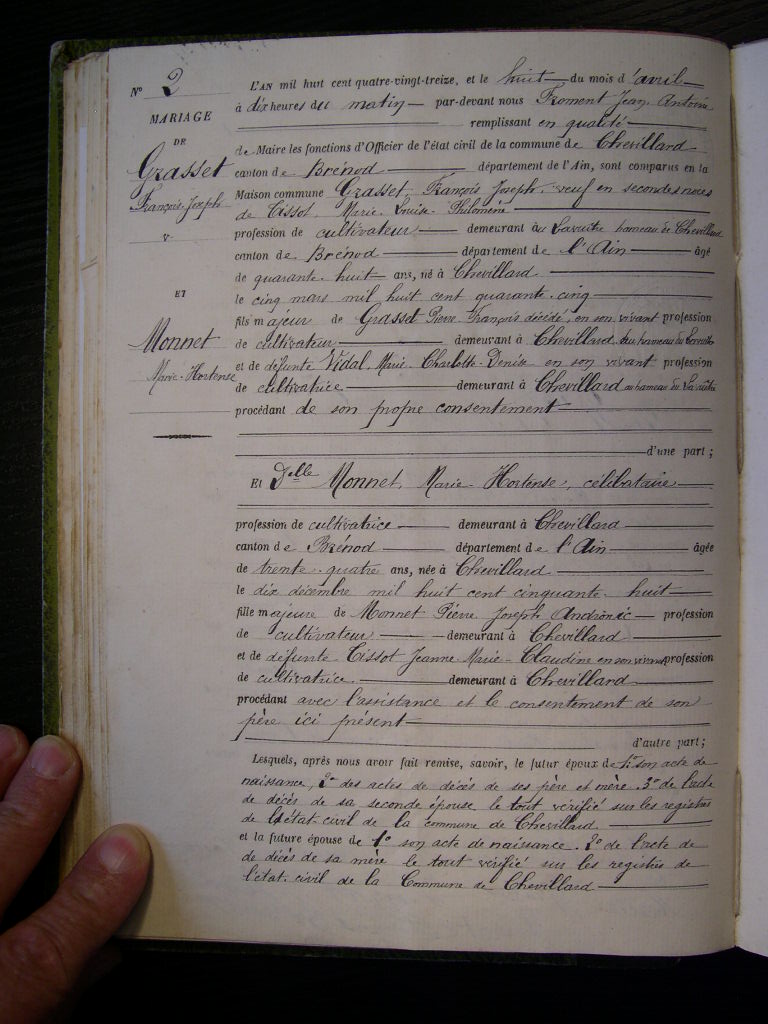 N° 2
MARIAGE
DE
Grasset
François-Joseph
ET
Monnet
Marie-Hortense
L'AN mil huit cent quatre-vingt-treize, et le huit du mois d'avril
à dix heures du matin par-devant nous Froment Jean Antoine
remplissant en qualité
de Maire les fonctions d'Officier de l'état civil de la commune de Chevillard
canton de Brénod département de l'Ain, sont comparus en la
Maison commune Grasset, François Joseph veuf en secondes noces
de Tissot, Marie Louise Philomène
profession de cultivateur demeurant au hameau de Chevillard
canton de Brénod département de l'Ain âgé
de quarante-huit ans, né à Chevillard
le cinq mars mil huit cent quarante-cinq
fils majeur de Grasset Pierre-François décédé, en son vivant profession
de cultivateur demeurant à Chevillard au hameau du
et de défunte Vidal, Marie-Charlotte-Denise en son vivant profession
de cultivatrice demeurant à Chevillard au hameau du
procédant de son propre consentement
d'une part ;
Et Delle Monnet, Marie-Hortense, célibataire
profession de cultivatrice demeurant à Chevillard
canton de Brénod département de l'Ain âgée
de trente-quatre ans, née à Chevillard
le dix décembre mil huit cent cinquante-huit
fille majeure de Monnet Pierre Joseph Andronic profession
de cultivateur demeurant à Chevillard
et de défunte Tissot Jeanne-Marie-Claudine en son vivant profession
de cultivatrice demeurant à Chevillard
procédant avec l'assistance et le consentement de son
père ici présent
d'autre part ;
Lesquels, après nous avoir fait remise, savoir, le futur époux de 1° son acte de
naissance, 2° des actes de décès de ses père et mère. 3° de l'acte
de décès de sa seconde épouse, le tout vérifié sur les registres
de l'état civil de la commune de Chevillard
et la future épouse de 1° son acte de naissance. 2° de l'acte de
de décès de sa mère le tout vérifié sur les registres de
l'état-civil de la Commune de Chevillard